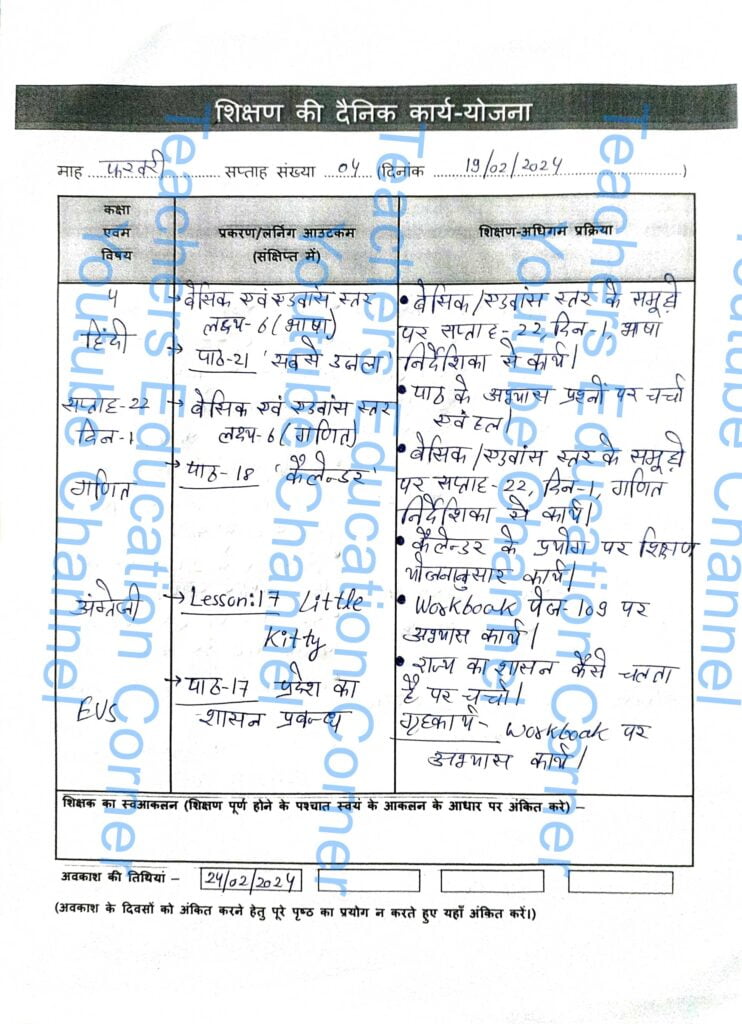 शिक्षण की दैनिक कार्य-योजना
माह फरवरी सप्ताह संख्या 04 (दिनांक 19/02/2024)
कक्षा
एवम
विषय
प्रकरण/लर्निंग आउटकम
(संक्षिप्त में)
शिक्षण-अधिगम प्रक्रिया
4
हिंदी
→ बेसिक एवं एडवांस स्तर
लक्ष्य-6 (भाषा)
→ पाठ-21 'सबसे उजला'
• बेसिक/एडवांस स्तर के समूहों
पर सप्ताह-22, दिन-1, भाषा
निर्देशिका से कार्य।
• पाठ के अभ्यास प्रश्नों पर चर्चा
एवं हल।
सप्ताह-22
दिन-1
गणित
→ बेसिक एवं एडवांस स्तर
लक्ष्य-6 (गणित)
→ पाठ-18 'कैलेन्डर'
• बेसिक/एडवांस स्तर के समूहों
पर सप्ताह-22, दिन-1, गणित
निर्देशिका से कार्य।
• कैलेन्डर के प्रयोग पर शिक्षण
योजनानुसार कार्य।
अंग्रेजी
→ Lesson:17 Little
Kitty
• Workbook पेज-109 पर
अभ्यास कार्य।
EVS
→ पाठ-17 प्रदेश का
शासन प्रबन्ध
• राज्य का शासन कैसे चलता
है पर चर्चा।
गृहकार्य- Workbook पर
अभ्यास कार्य।
शिक्षक का स्वआकलन (शिक्षण पूर्ण होने के पश्चात स्वयं के आकलन के आधार पर अंकित करे) –
अवकाश की तिथियां – 24/02/2024
(अवकाश के दिवसों को अंकित करने हेतु पूरे पृष्ठ का प्रयोग न करते हुए यहाँ अंकित करें।)
Teachers Education Corner
Youtube Channel
Teachers Education Corner
Youtube Channel
Teachers Education Corner
Youtube Channel